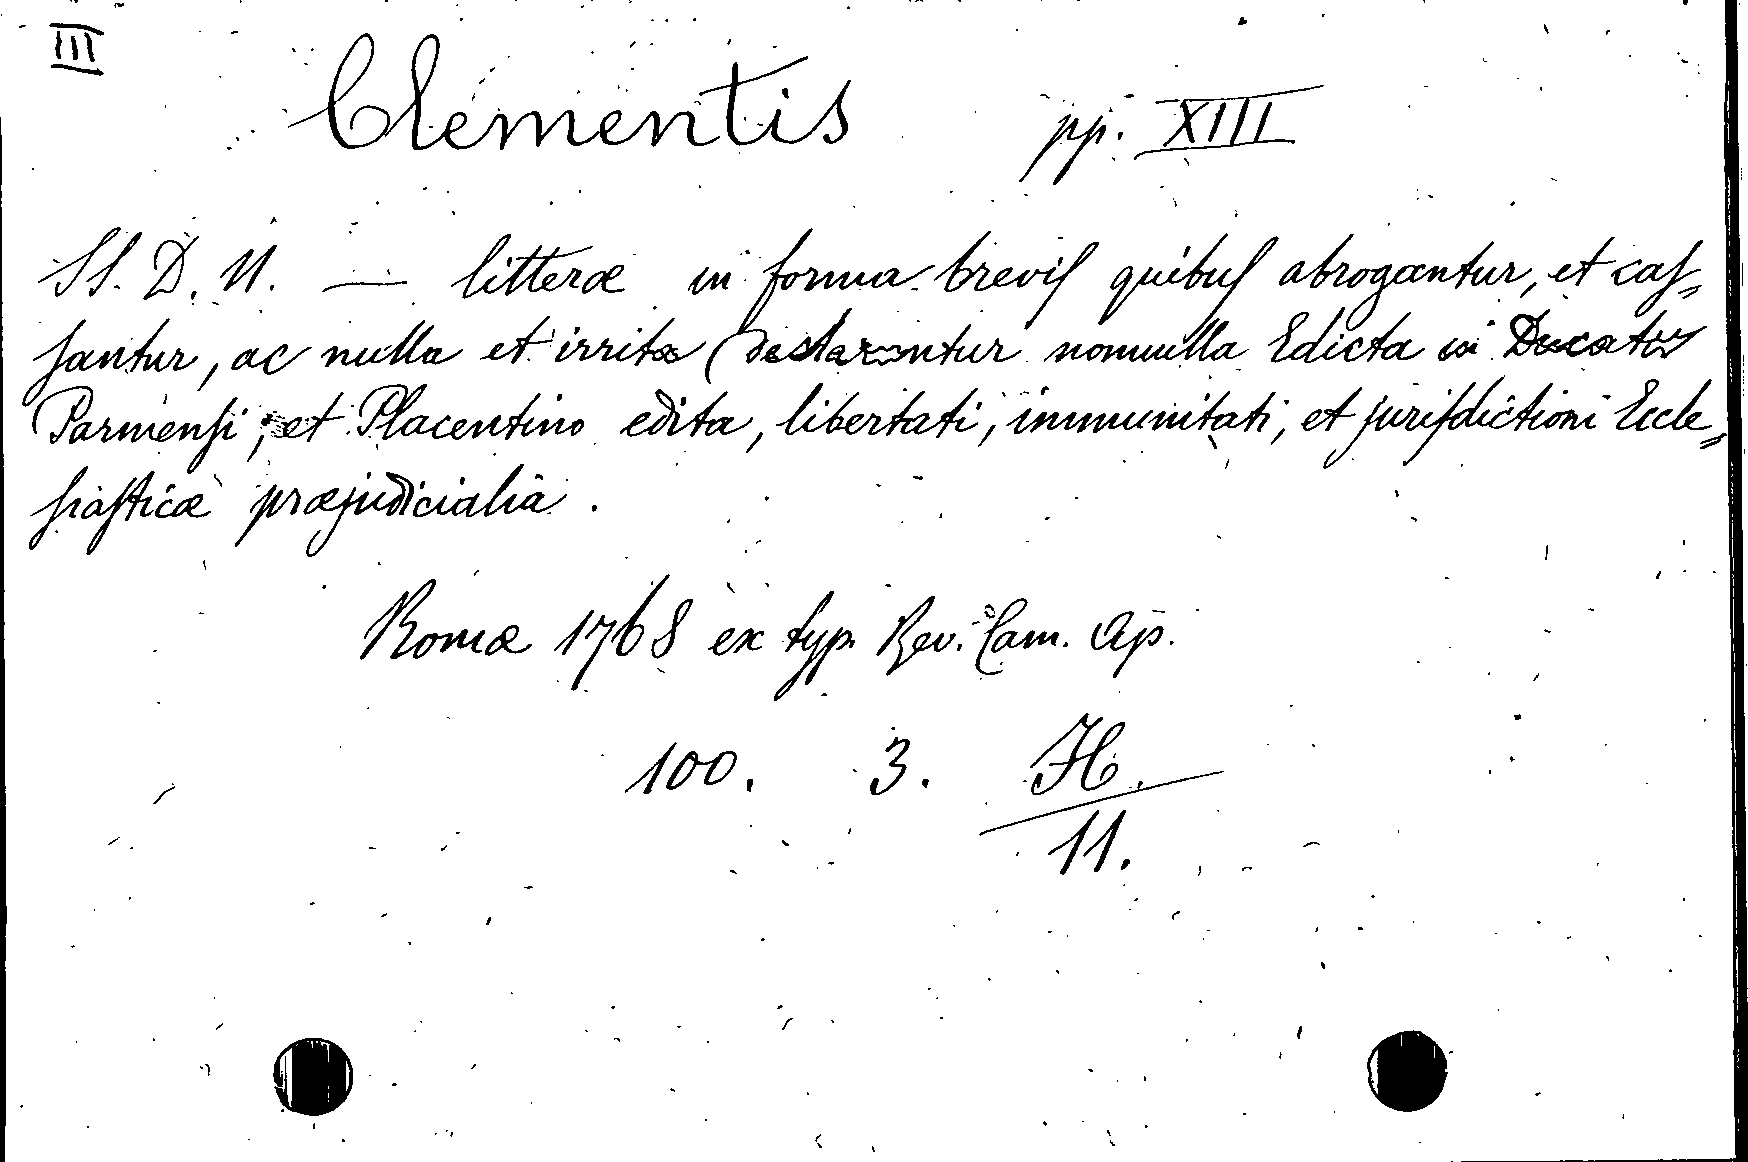 III
Clementis pp. XIII
SS. D. N. — litteræ in forma brevis quibus abrogantur, et cas-
santur, ac nulla et irrita declarantur nonnulla Edicta in Ducatu
Parmensi, et Placentino edita, libertati, immunitati, et jurisdictioni Eccle-
siasticæ præjudicialia.
Romæ 1768 ex typ. Rev. Cam. Ap.
100. 3. H.
11.